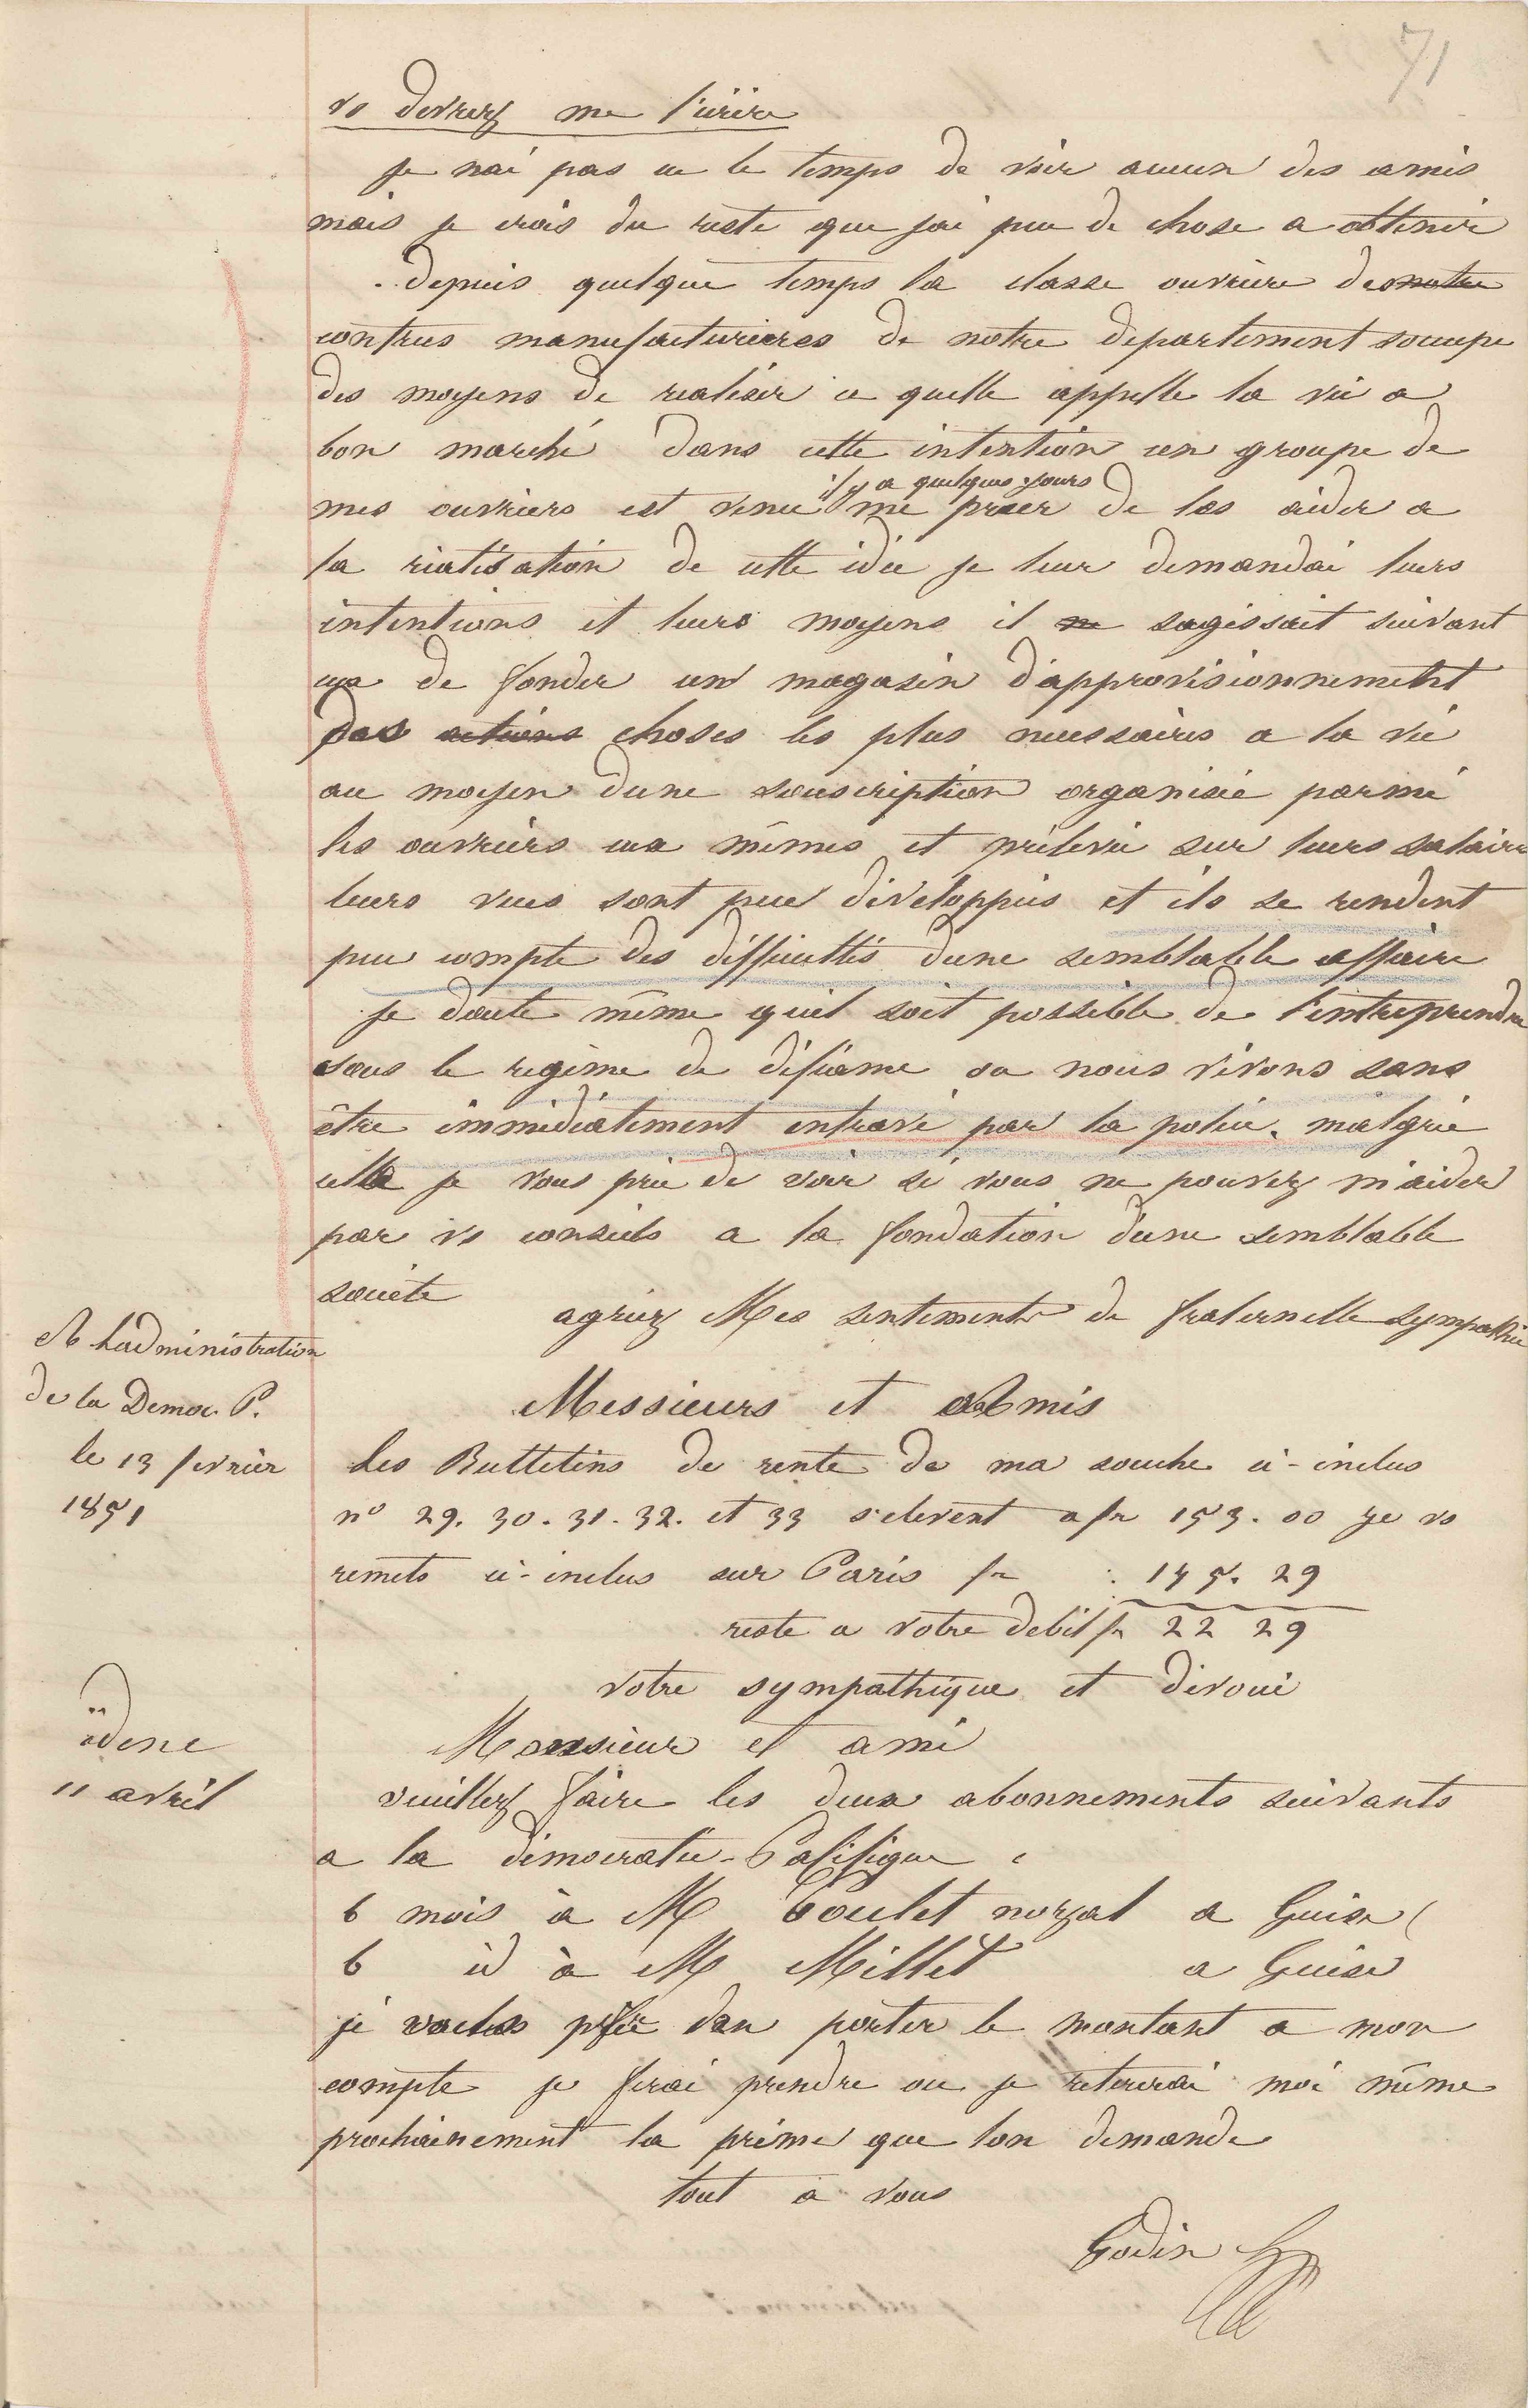 71
vs devrez me l'ecrire
je nai pas eu le temps de voir aucun des amis
mais je crois du reste que jai peu de chose a obtenir
depuis quelque temps la classe ouvriere des notre
centres manufacturieres de notre departement soccupe
des moyens de realiser ce quelle appelle la vie a
bon marché dans cette intention un groupe de
il y a quelques jours
mes ouvriers est venu me prier de les aider a
la réalisation de cette idée je leur demandai leurs
intentions et leurs moyens il ne sagissait suivant
eux de fonder un magasin d'approvisionnement
des actions choses les plus necessaires a la vie
au moyen d'une souscription organisée parmi
les ouvriers eux mêmes et prélevée sur leurs salaires
leurs vues sont peu développés et ils se rendent
peu compte des difficultés d'une semblable affaire
je doute même quil soit possible de l'entreprendre
sous le regime de défiance ou nous vivons sans
être immédiatement entravé par la police. malgrée
cella je vous prie de voir si vous ne pouvez m'aider
par vs conseils a la fondation d'une semblable
societe
agréez Mes sentiments de fraternelle sympathie
A Ladministration
de la Democ. P.
le 13 fevrier
1851
Messieurs et Amis
Les Bulletins de rente de ma souche ci-inclus
n° 29. 30. 31. 32. et 33 s'elevent a fr 153.00 je vs
remets ci-inclus sur Paris fr 175. 29
reste a votre debit fr 22 29
votre sympathique et dévoué
idene
11 avril
Monsieur et ami
veuillez faire les deux abonnements suivants
a la démocratie-Pacifique
6 mois à M Poulet norzal a Guise
6 id à M Millet a Guise
je vous prie den porter le montant a mon
compte je ferai prendre ou je retirerai moi même
prochainement la prime que lon demande
tout a vous
Godin